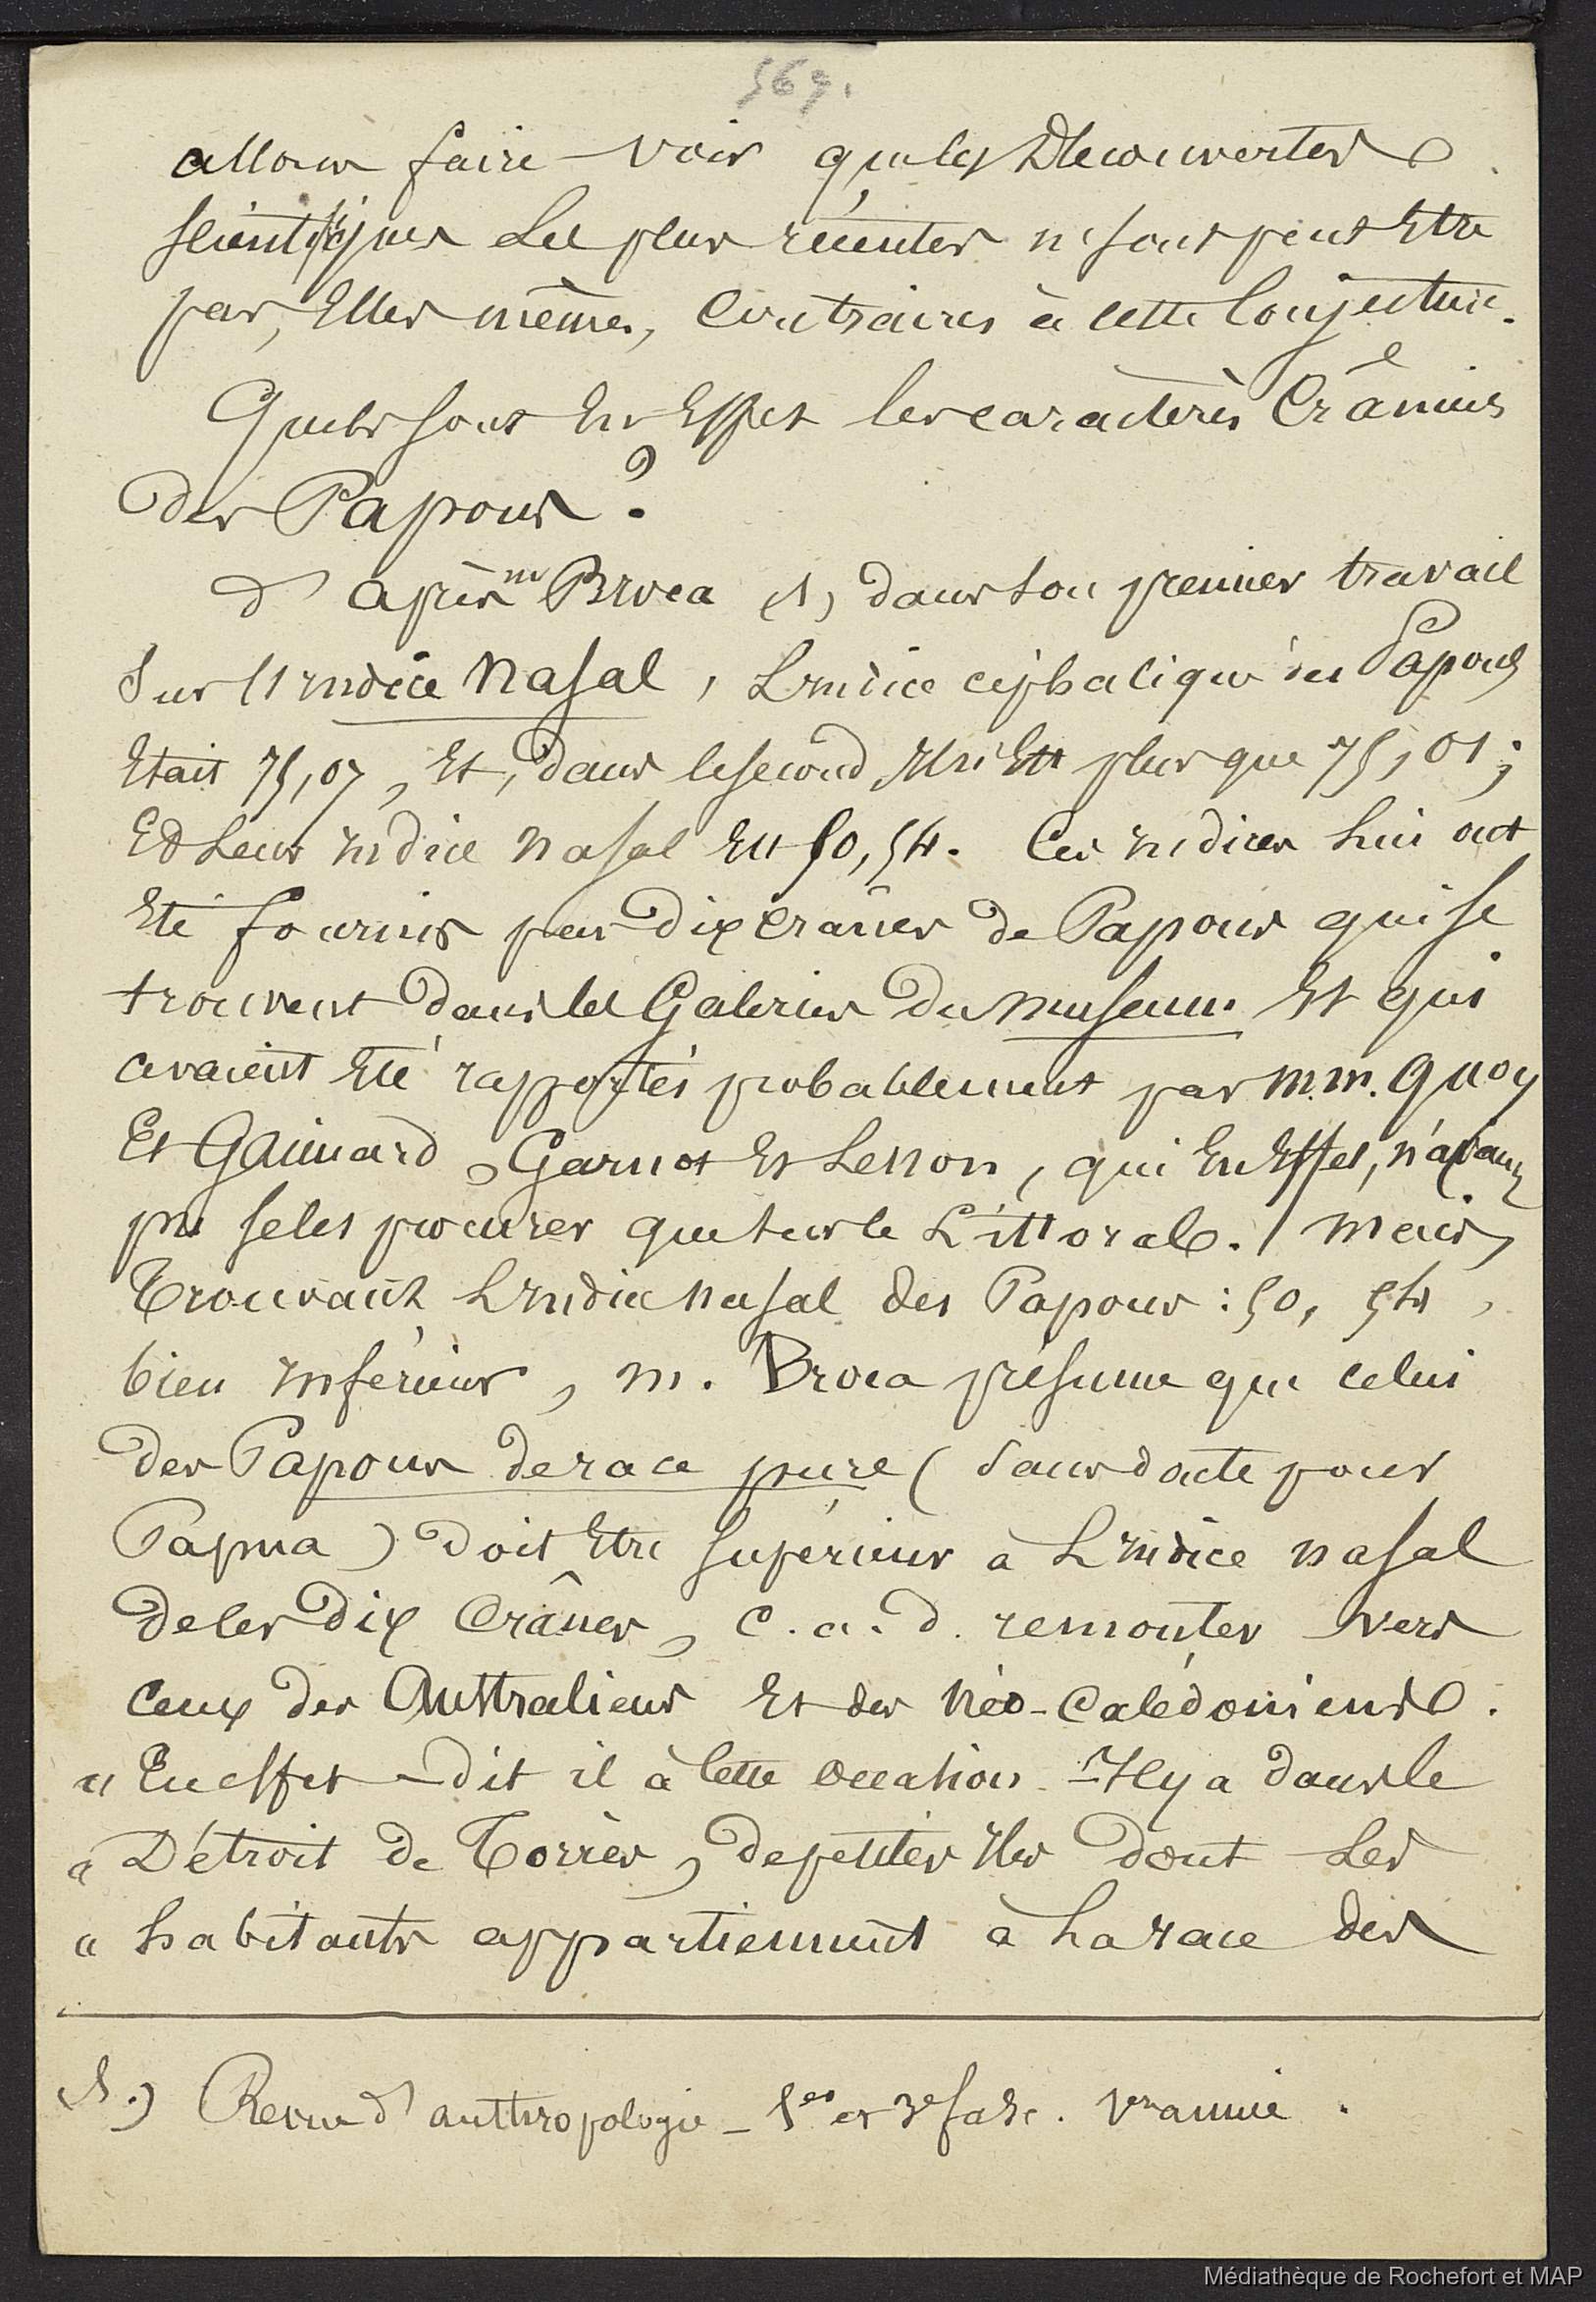 569.
allons faire voir que les Découvertes
scientifiques Les plus récentes ne sont peut Etre
pas, Elles mêmes, Contraires à cette Conjecture.
Quels sont En Effet les caractères Crâniens
des Papous ?
d'après m Broca (1) dans son premier travail
Sur l'Indice Nasal, L'indice céphalique des Papous
Etait 75,07, Et, dans le second, Il n'Est plus que 75,01 ;
Et Leur indice nasal Est 50,54. Ces indices Lui ont
Eté fournis par Dix crânes de Papous qui se
trouvent dans les Galeries du museum Et qui
avaient Eté rapportés probablement par m.m. Quoy
Et Gaimard, Garnot Et Lesson, qui En Effet, n'avaient
pu se les procurer que sur le Littoral. / mais,
Trouvant L'Indice nasal des Papous : 50, 54,
bien inférieur, m. Broca présume que celui
des Papous de race pure ( Sans doute pour
Papua ) doit Etre supérieur à L'indice nasal
de ces Dix Crânes, c.a.d. remonter vers
ceux des Australiens Et des Néo-Calédoniens.
" En effet - dit il à cette occasion - Il y a dans le
" Détroit de Torrès, de petites Iles dont Les
" habitants appartiennent à La race des
(1.) Revue d'anthropologie - 1er et 3e fasc. 1re année.
Médiathèque de Rochefort et MAP